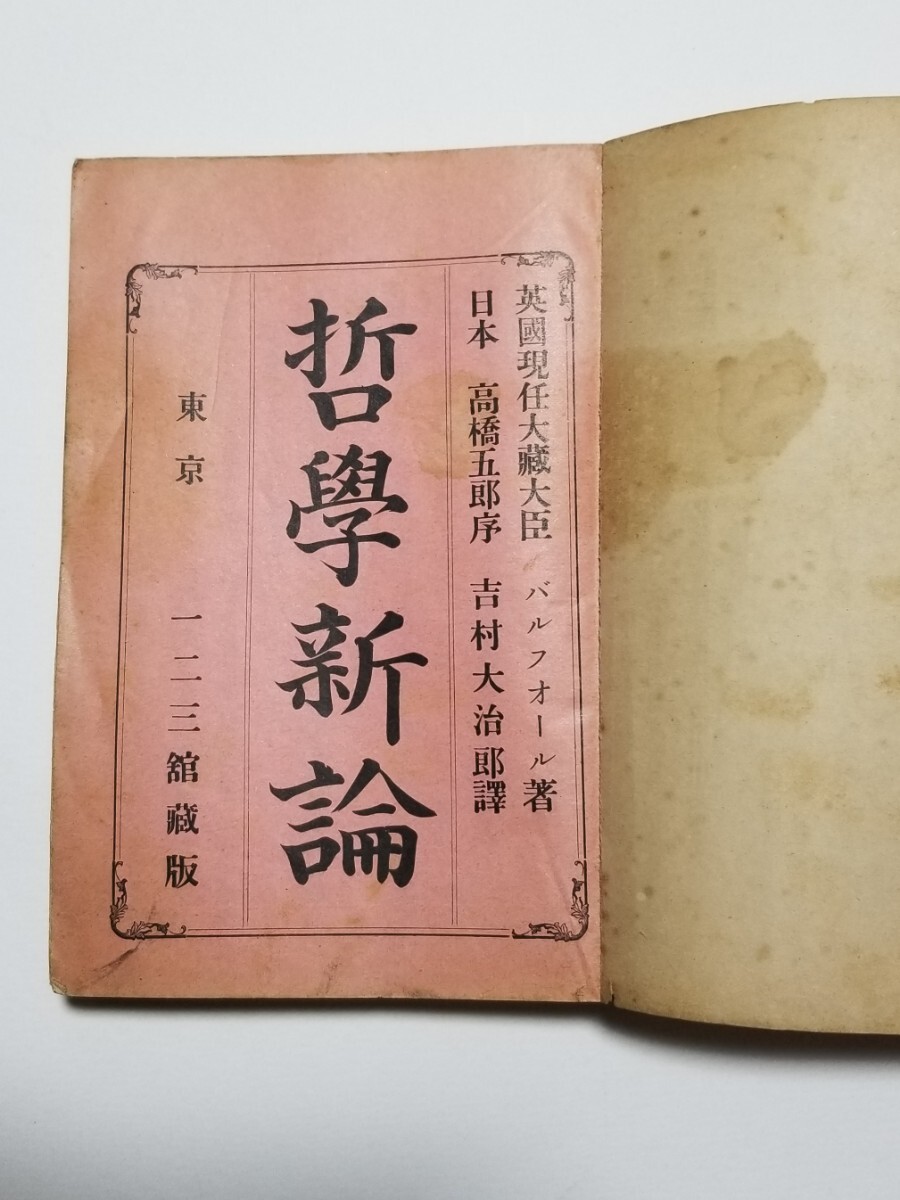 英國現任大藏大臣 バルフオール著
日本 高橋五郎序 吉村大治郎譯
哲學新論
東京 一二三舘藏版